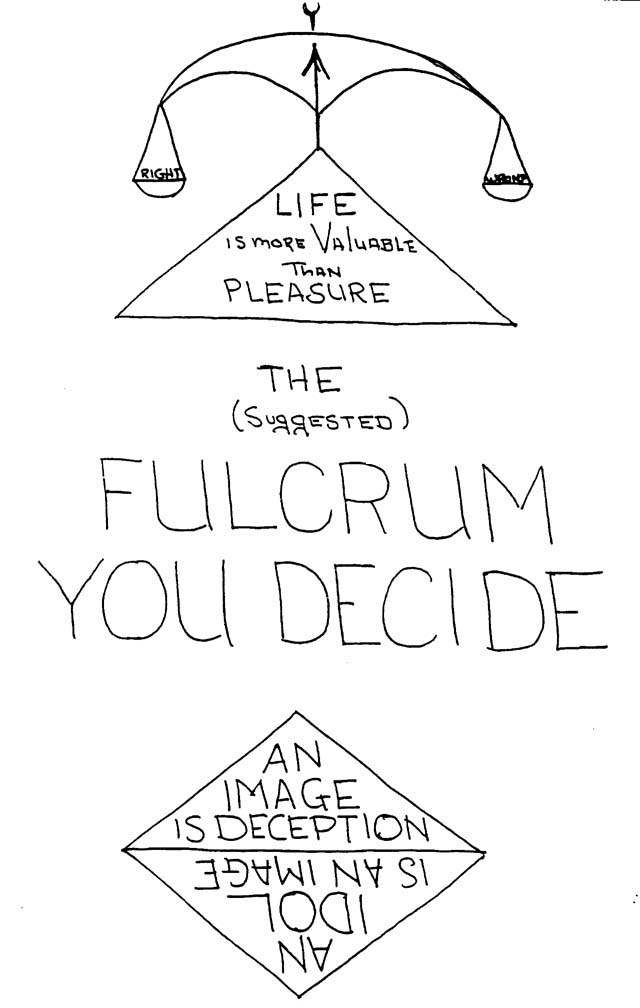 RIGHT
WRONG
LIFE
IS MORE VALUABLE
THAN
PLEASURE
THE
(SUGGESTED)
FULCRUM
YOU DECIDE
AN
IMAGE
IS DECEPTION
AN
IDOL
IS AN IMAGE